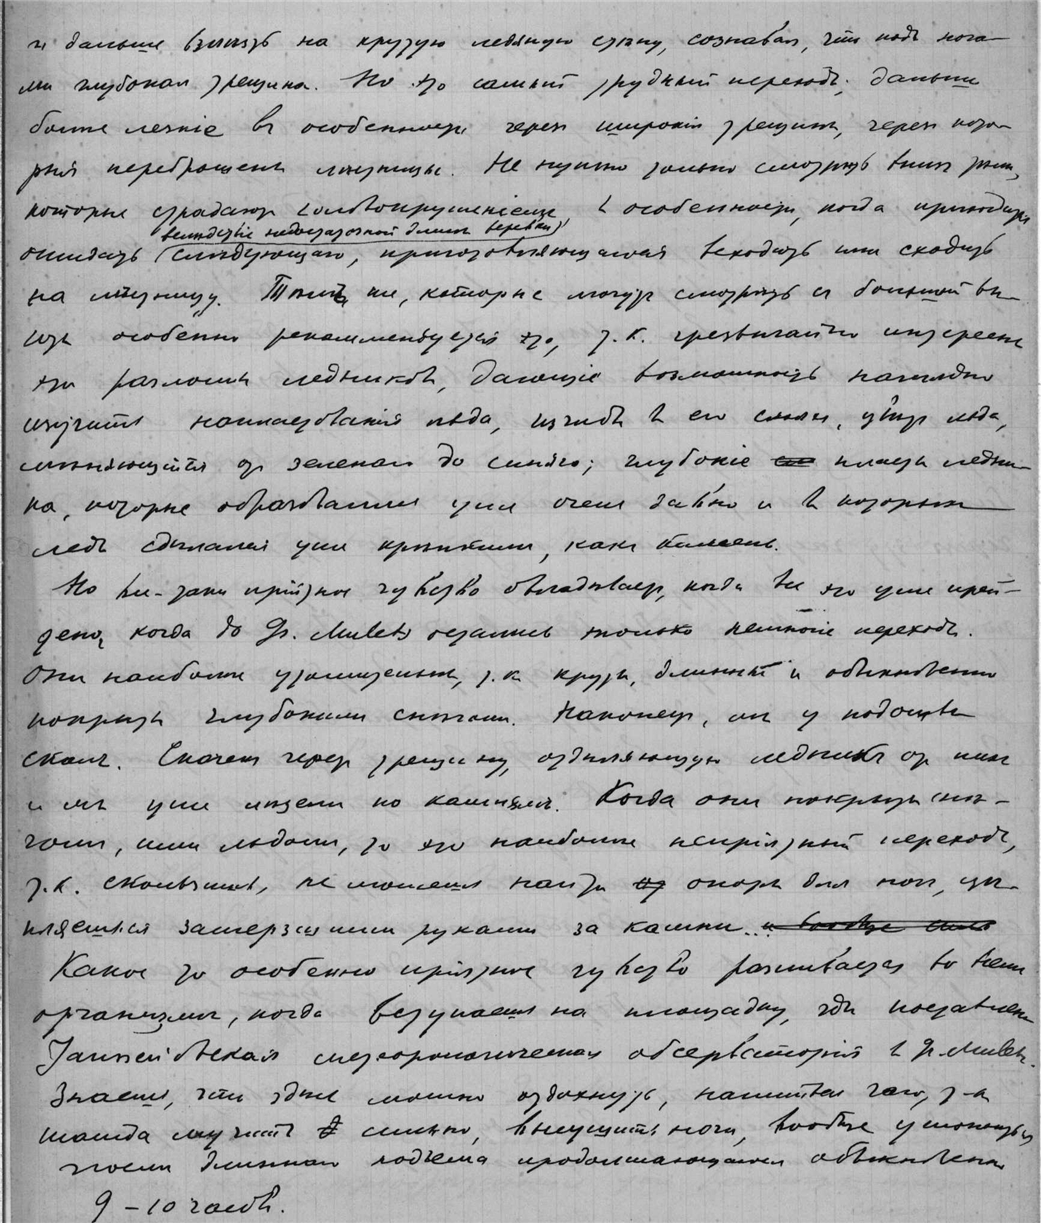 и дальше влѣзть на крутую ледяную стѣну, сознавая, что подъ нога-
ми глубокая трещина. Но это самый трудный переходъ; дальше
болѣе легкіе въ особенности черезъ широкія трещины, черезъ кото-
рыя переброшены лѣстницы. Не нужно только смотрѣть внизъ тѣмъ,
которые страдаютъ головокруженіемъ, въ особенности, когда приходится
вслѣдствіе недостаточной длины веревки
ожидать слѣдующаго, приготовляющагося всходить или сходить
на лѣстницу. Тѣмъ же, которые могутъ смотрѣть съ большой вы-
соты особенно рекомендуется это, т.к. чрезвычайно интересны
эти разломы ледниковъ, дающіе возможность наглядно
изучить наслаиванія льда, изгибъ въ его слояхъ, цвѣтъ льда,
мѣняющійся отъ зеленаго до синяго; глубокіе пласты ледни-
ка, которые образовались уже очень давно и въ которыхъ
ледъ сдѣлался уже крѣпкимъ, какъ камень.
Но все-таки пріятное чувство овладѣваетъ, когда все это уже прой-
дено, когда до Gr. Mulets остались только немногіе переходы.
Они наиболѣе утомительны, т.к. круты, длинны и обыкновенно
покрыты глубокими снѣгами. Наконецъ, мы у подошвы
скалъ. Скачекъ черезъ трещину, отдѣляющую ледникъ отъ нихъ
и мы уже лѣземъ по камнямъ. Когда они покрыты снѣ-
гомъ, или льдомъ, то это наиболѣе непріятный переходъ,
т.к. скользишь, не можешь найти опоры для ногъ, цѣ-
пляешься замерзшими руками за камни.
Какое то особенно пріятное чувство разливается во всемъ
организмѣ, когда вступаешь на площадку, гдѣ поставлена
Жансеновская метеорологическая обсерваторія въ Gr. Mulets.
Знаешь, что здѣсь можно отдохнуть, напиться чаю, т.к.
жажда мучитъ сильно, высушить ноги, вообще успокоиться
послѣ длиннаго подъема продолжающагося обыкновенно
9 – 10 часовъ.